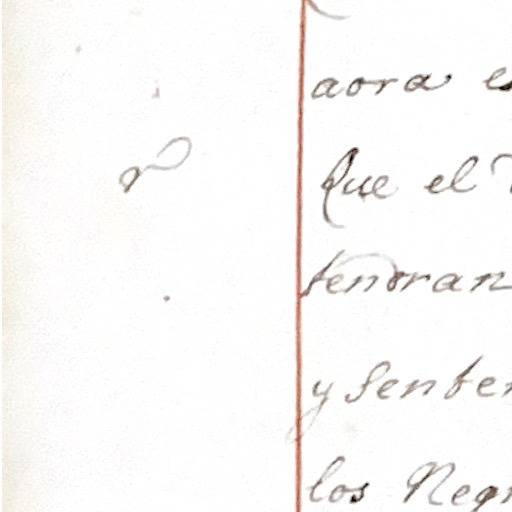 aora
Que el
tendran
y Senten
los Negr